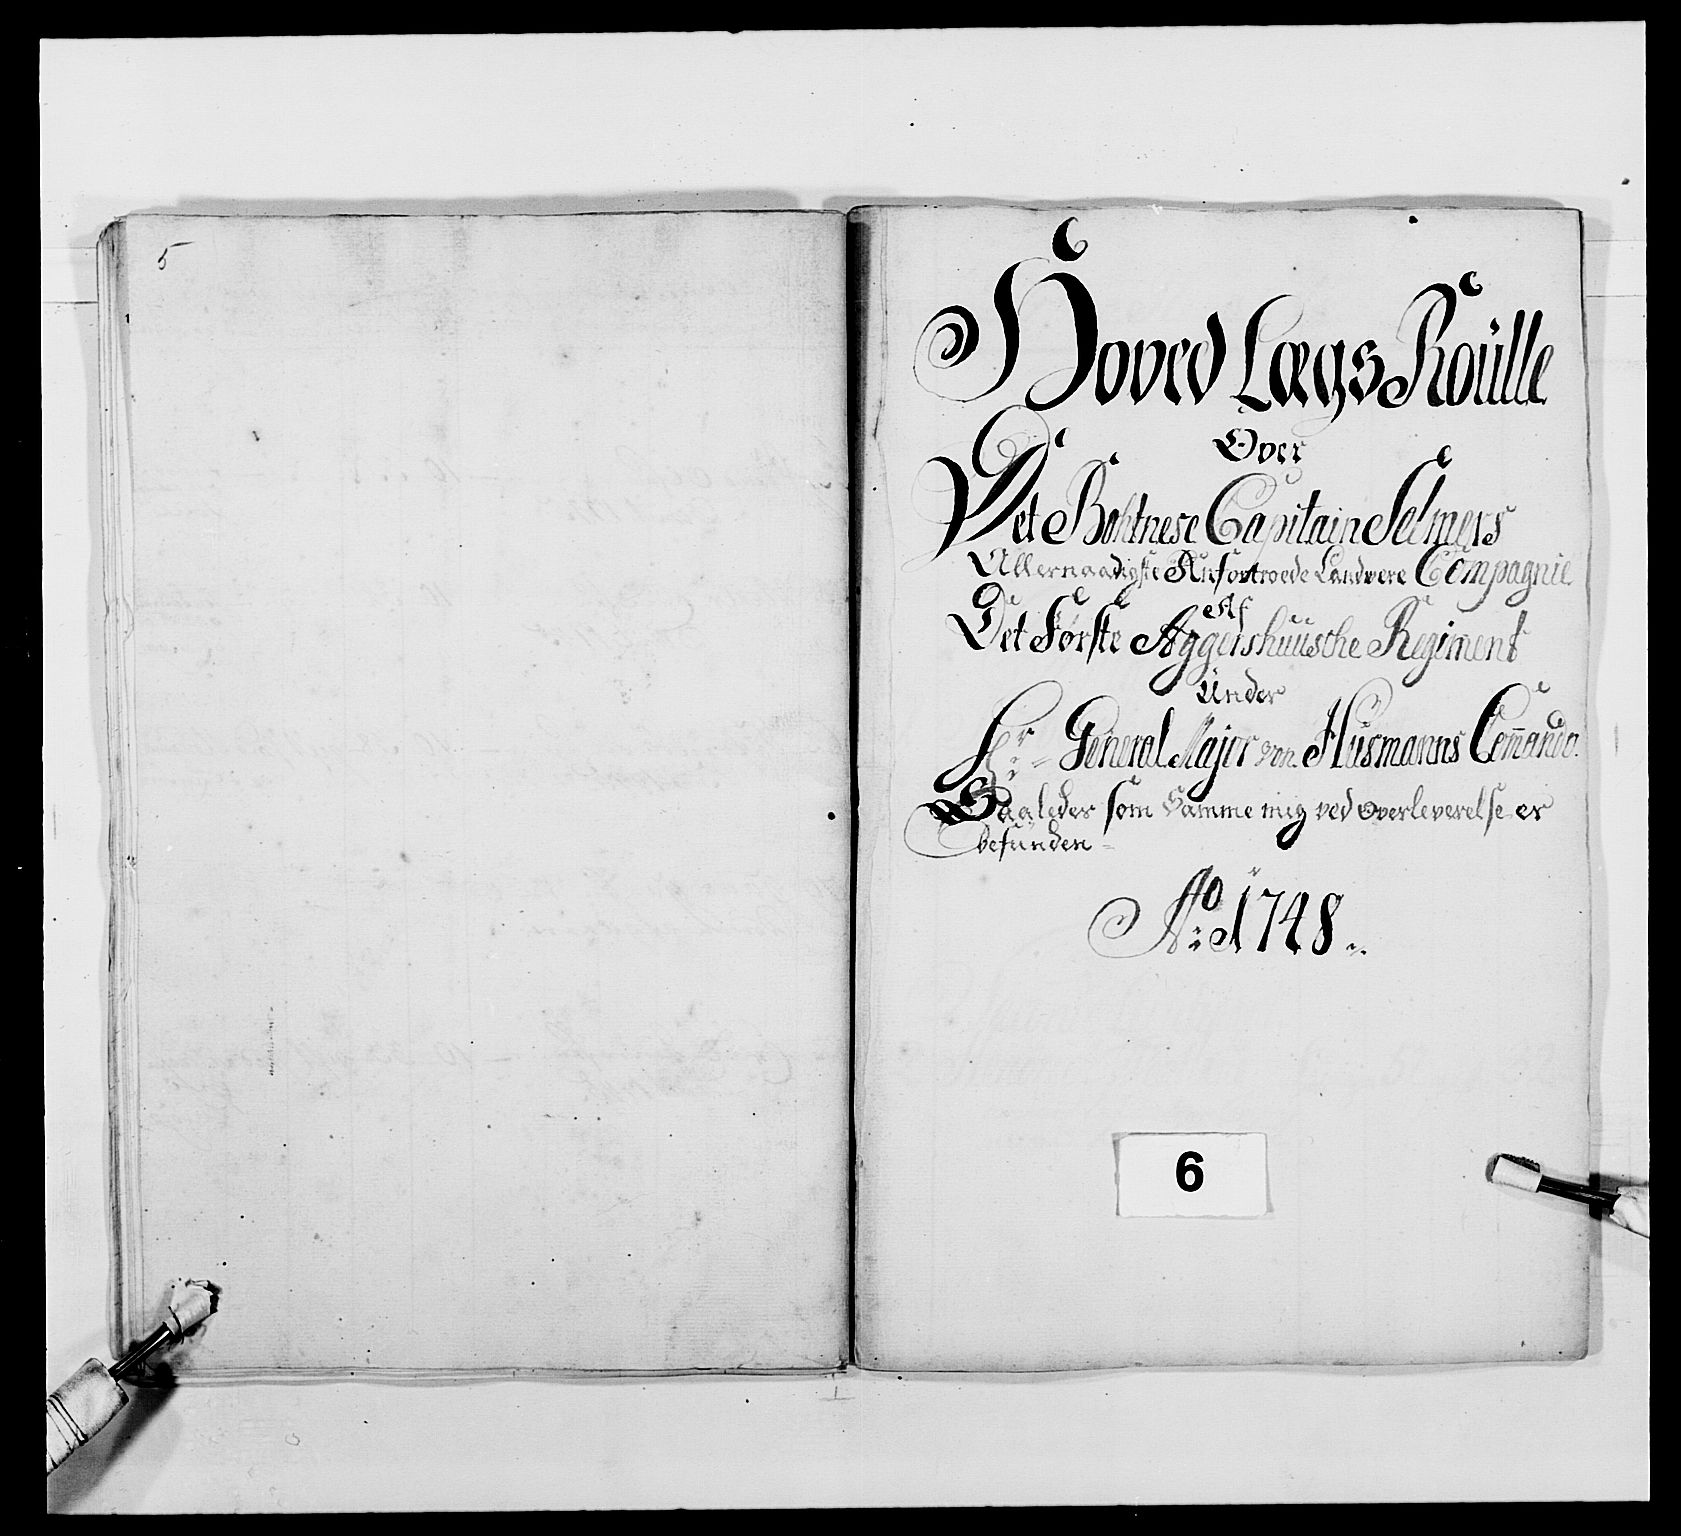 5
Hoved Lægs Roülle
Over
Det Bohtnese Capitain Selmers
Allernaadigste Anfortroede Landvere Compagnie
Af
Det Første Aggershuüsche Regiment
Ünder
Hr: General Major von Hüsmanns Com̅ando.
Saaledes som Samme mig ved overleverelse er
befünden
Ao: 1748.
6